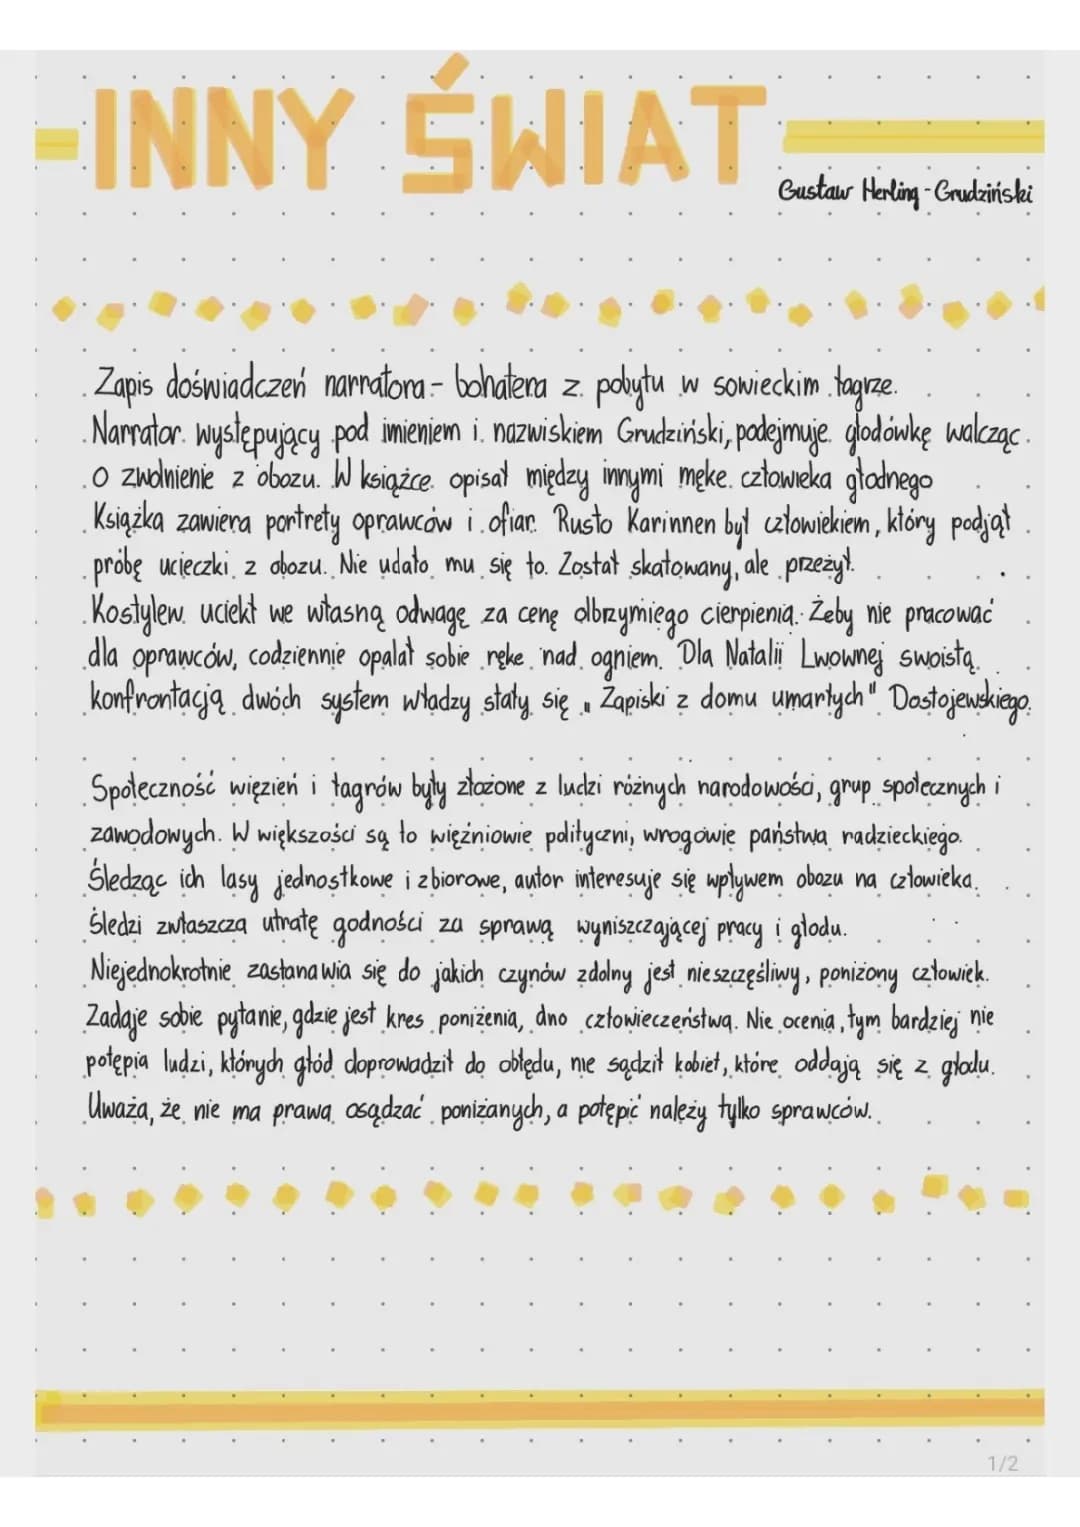 INNY ŚWIAT
Gustaw Herling - Grudziński
Zapis doświadczeń narratora - bohatera z pobytu w sowieckim łagrze.
Narrator występujący pod imieniem i nazwiskiem Grudziński, podejmuje głodówkę walcząc
o zwolnienie z obozu. W książce opisał między innymi męke człowieka głodnego
Książka zawiera portrety oprawców i ofiar. Rusto Karinnen był człowiekiem, który podjął
próbę ucieczki z obozu. Nie udało mu się to. Został skatowany, ale przeżył.
Kostylew uciekł we własną odwagę za cenę olbrzymiego cierpienia. Żeby nie pracować
dla oprawców, codziennie opalał sobie ręke nad ogniem. Dla Natalii Lwownej swoistą
konfrontacją dwóch system władzy stały się „Zapiski z domu umarłych" Dostojewskiego.
Społeczność więzień i łagrów były złożone z ludzi różnych narodowości, grup społecznych i
zawodowych. W większości są to więźniowie polityczni, wrogowie państwa radzieckiego.
Śledząc ich lasy jednostkowe i zbiorowe, autor interesuje się wpływem obozu na człowieka.
Śledzi zwłaszcza utratę godności za sprawą wyniszczającej pracy i głodu.
Niejednokrotnie zastanawia się do jakich czynów zdolny jest nieszczęśliwy, poniżony człowiek.
Zadaje sobie pytanie, gdzie jest kres poniżenia, dno człowieczeństwa. Nie ocenia, tym bardziej nie
potępia ludzi, których głód doprowadził do obłędu, nie sądził kobiet, które oddają się z głodu.
Uważa, że nie ma prawa osądzać poniżanych, a potępić należy tylko sprawców.
1/2